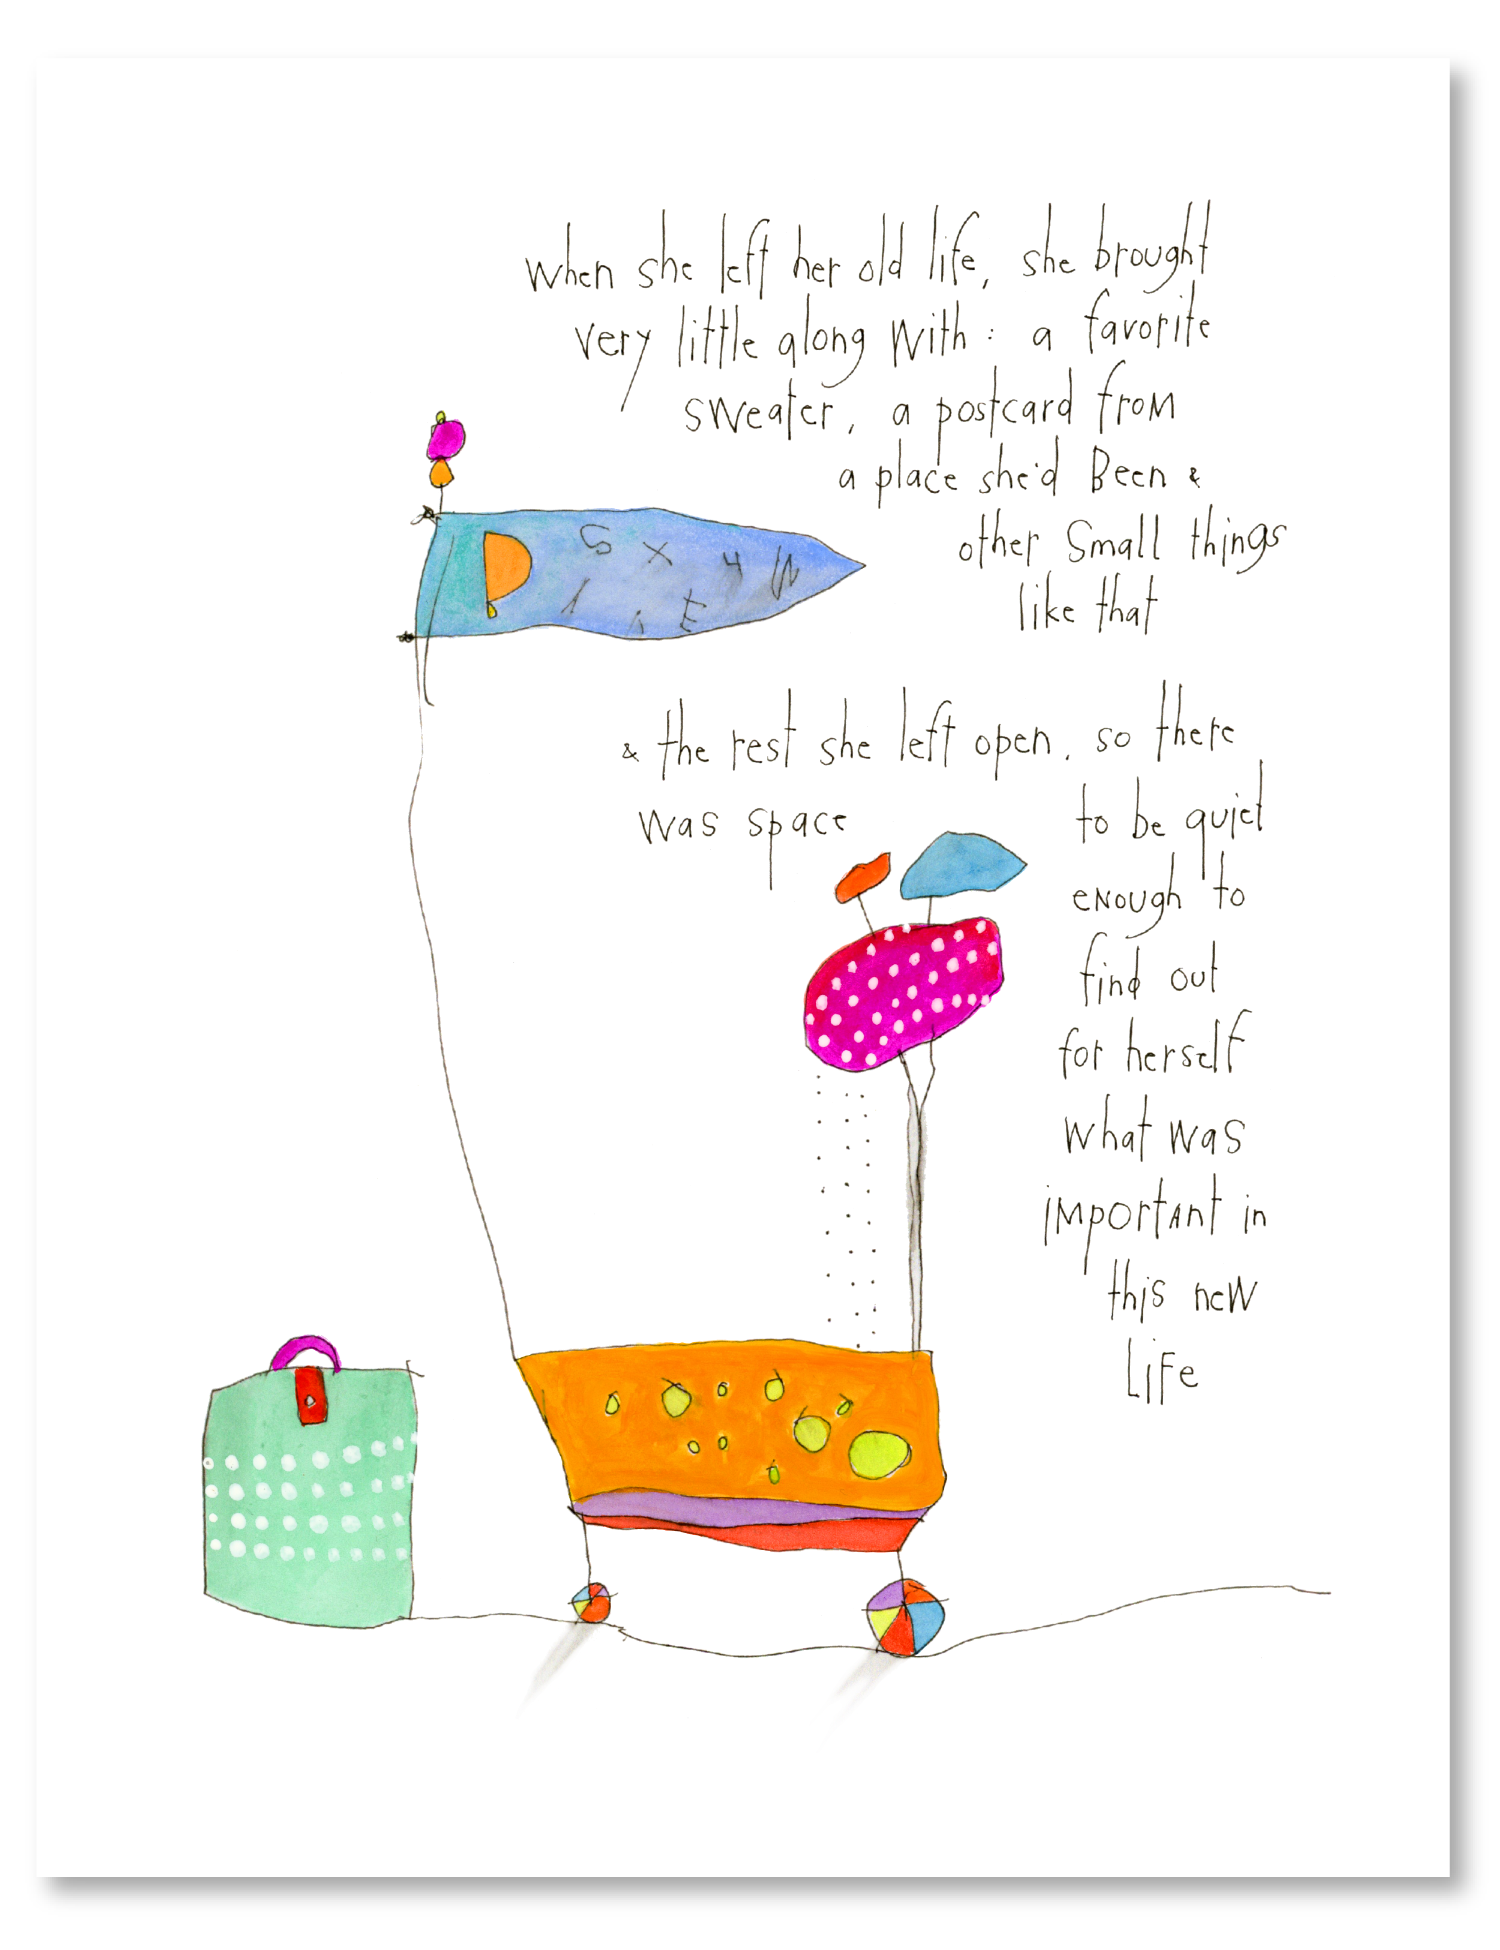 when she left her old life, she brought
very little along with: a favorite
sweater, a postcard from
a place she'd Been &
other small things
like that
& the rest she left open, so there
was space to be quiet
enough to
find out
for herself
what was
important in
this new
life